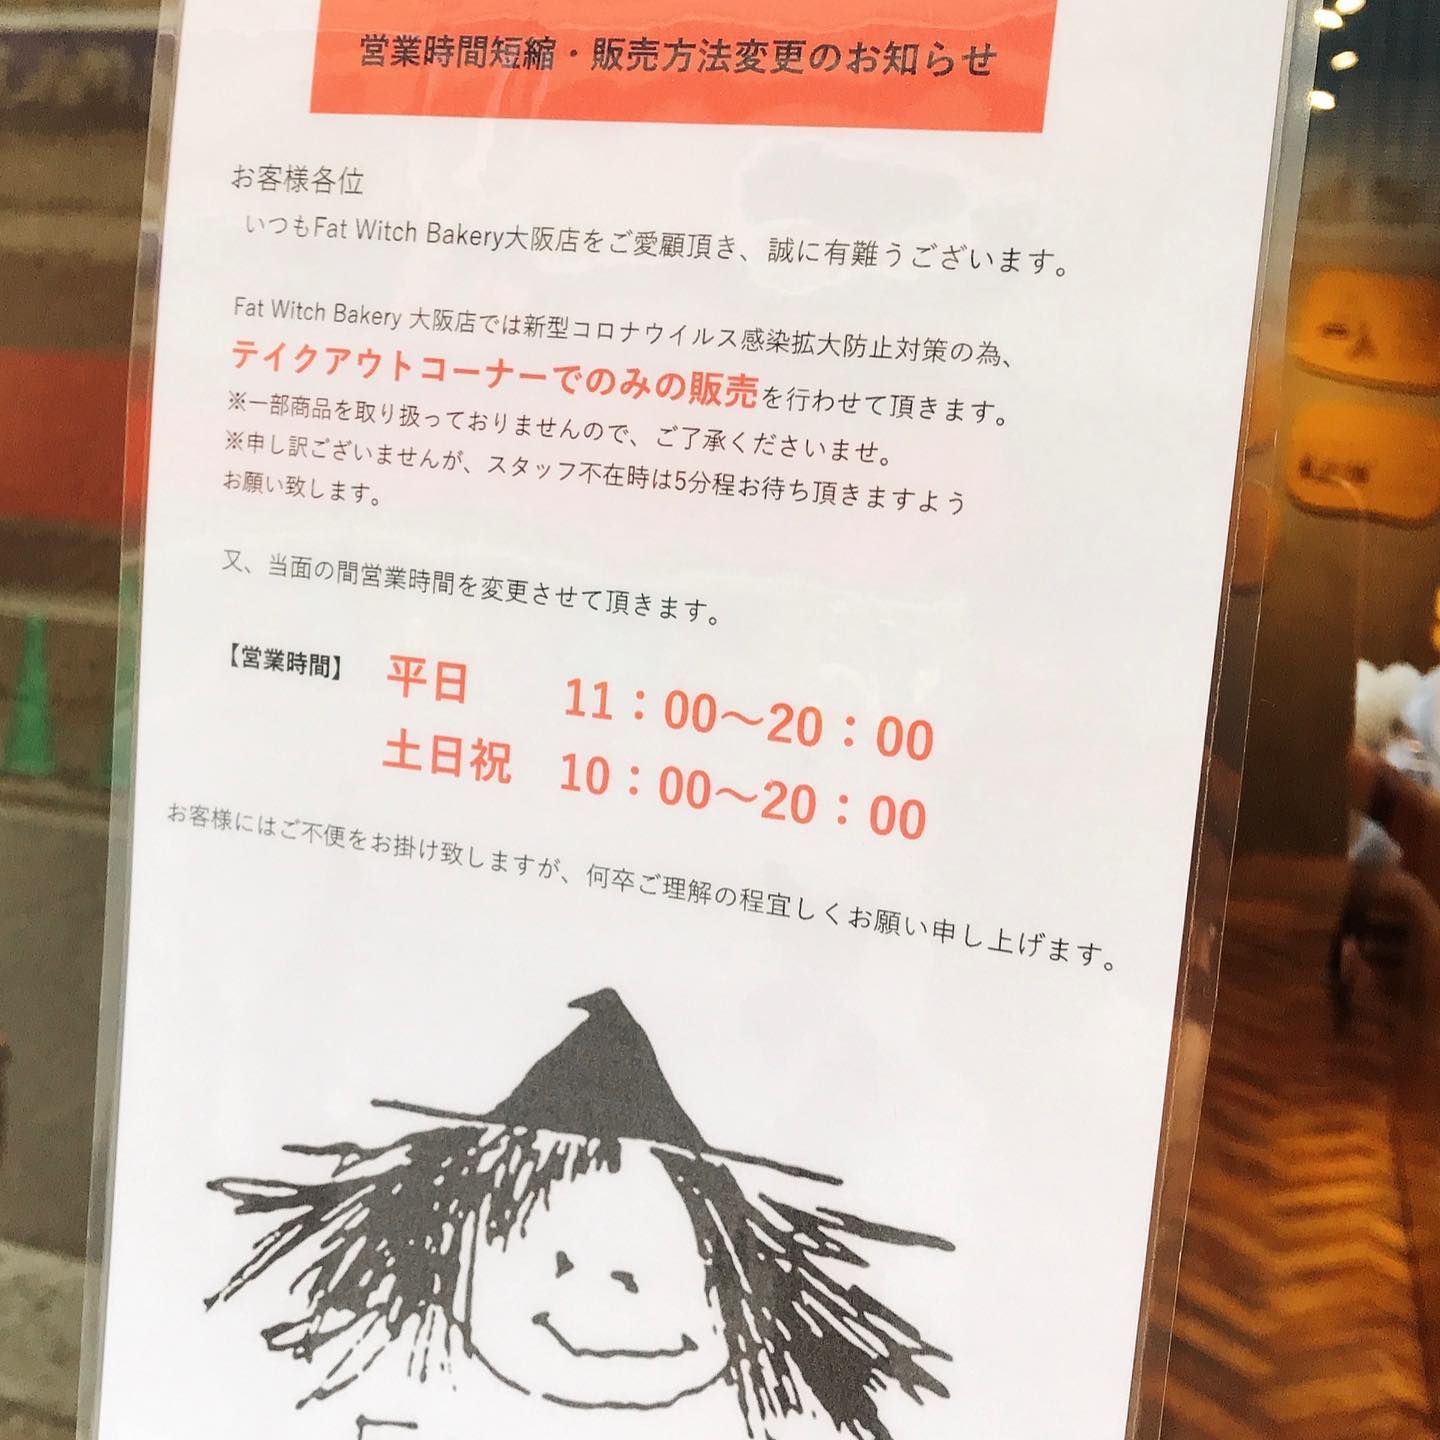 営業時間短縮・販売方法変更のお知らせ
お客様各位
いつもFat Witch Bakery大阪店をご愛顧頂き、誠に有難うございます。
Fat Witch Bakery 大阪店では新型コロナウイルス感染拡大防止対策の為、
テイクアウトコーナーでのみの販売を行わせて頂きます。
※一部商品を取り扱っておりませんので、ご了承くださいませ。
※申し訳ございませんが、スタッフ不在時は5分程お待ち頂きますよう
お願い致します。
又、当面の間営業時間を変更させて頂きます。
【営業時間】 平日 11：00〜20：00
土日祝 10：00〜20：00
お客様にはご不便をお掛け致しますが、何卒ご理解の程宜しくお願い申し上げます。